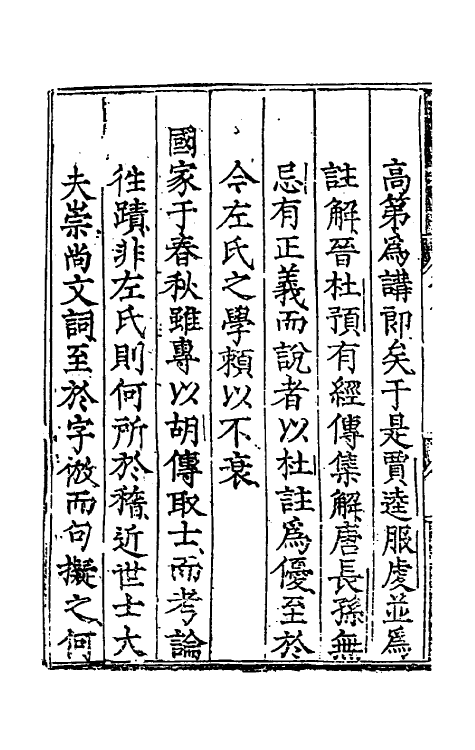 高第爲講郎矣于是賈逵服虔並爲
註解晉杜預有經傳集解唐長孫無
忌有正義而說者以杜註爲優至於
今左氏之學賴以不衰
國家于春秋雖專以胡傳取士而考論
徃蹟非左氏則何所於稽近世士大
夫崇尚文詞至於字倣而句擬之何